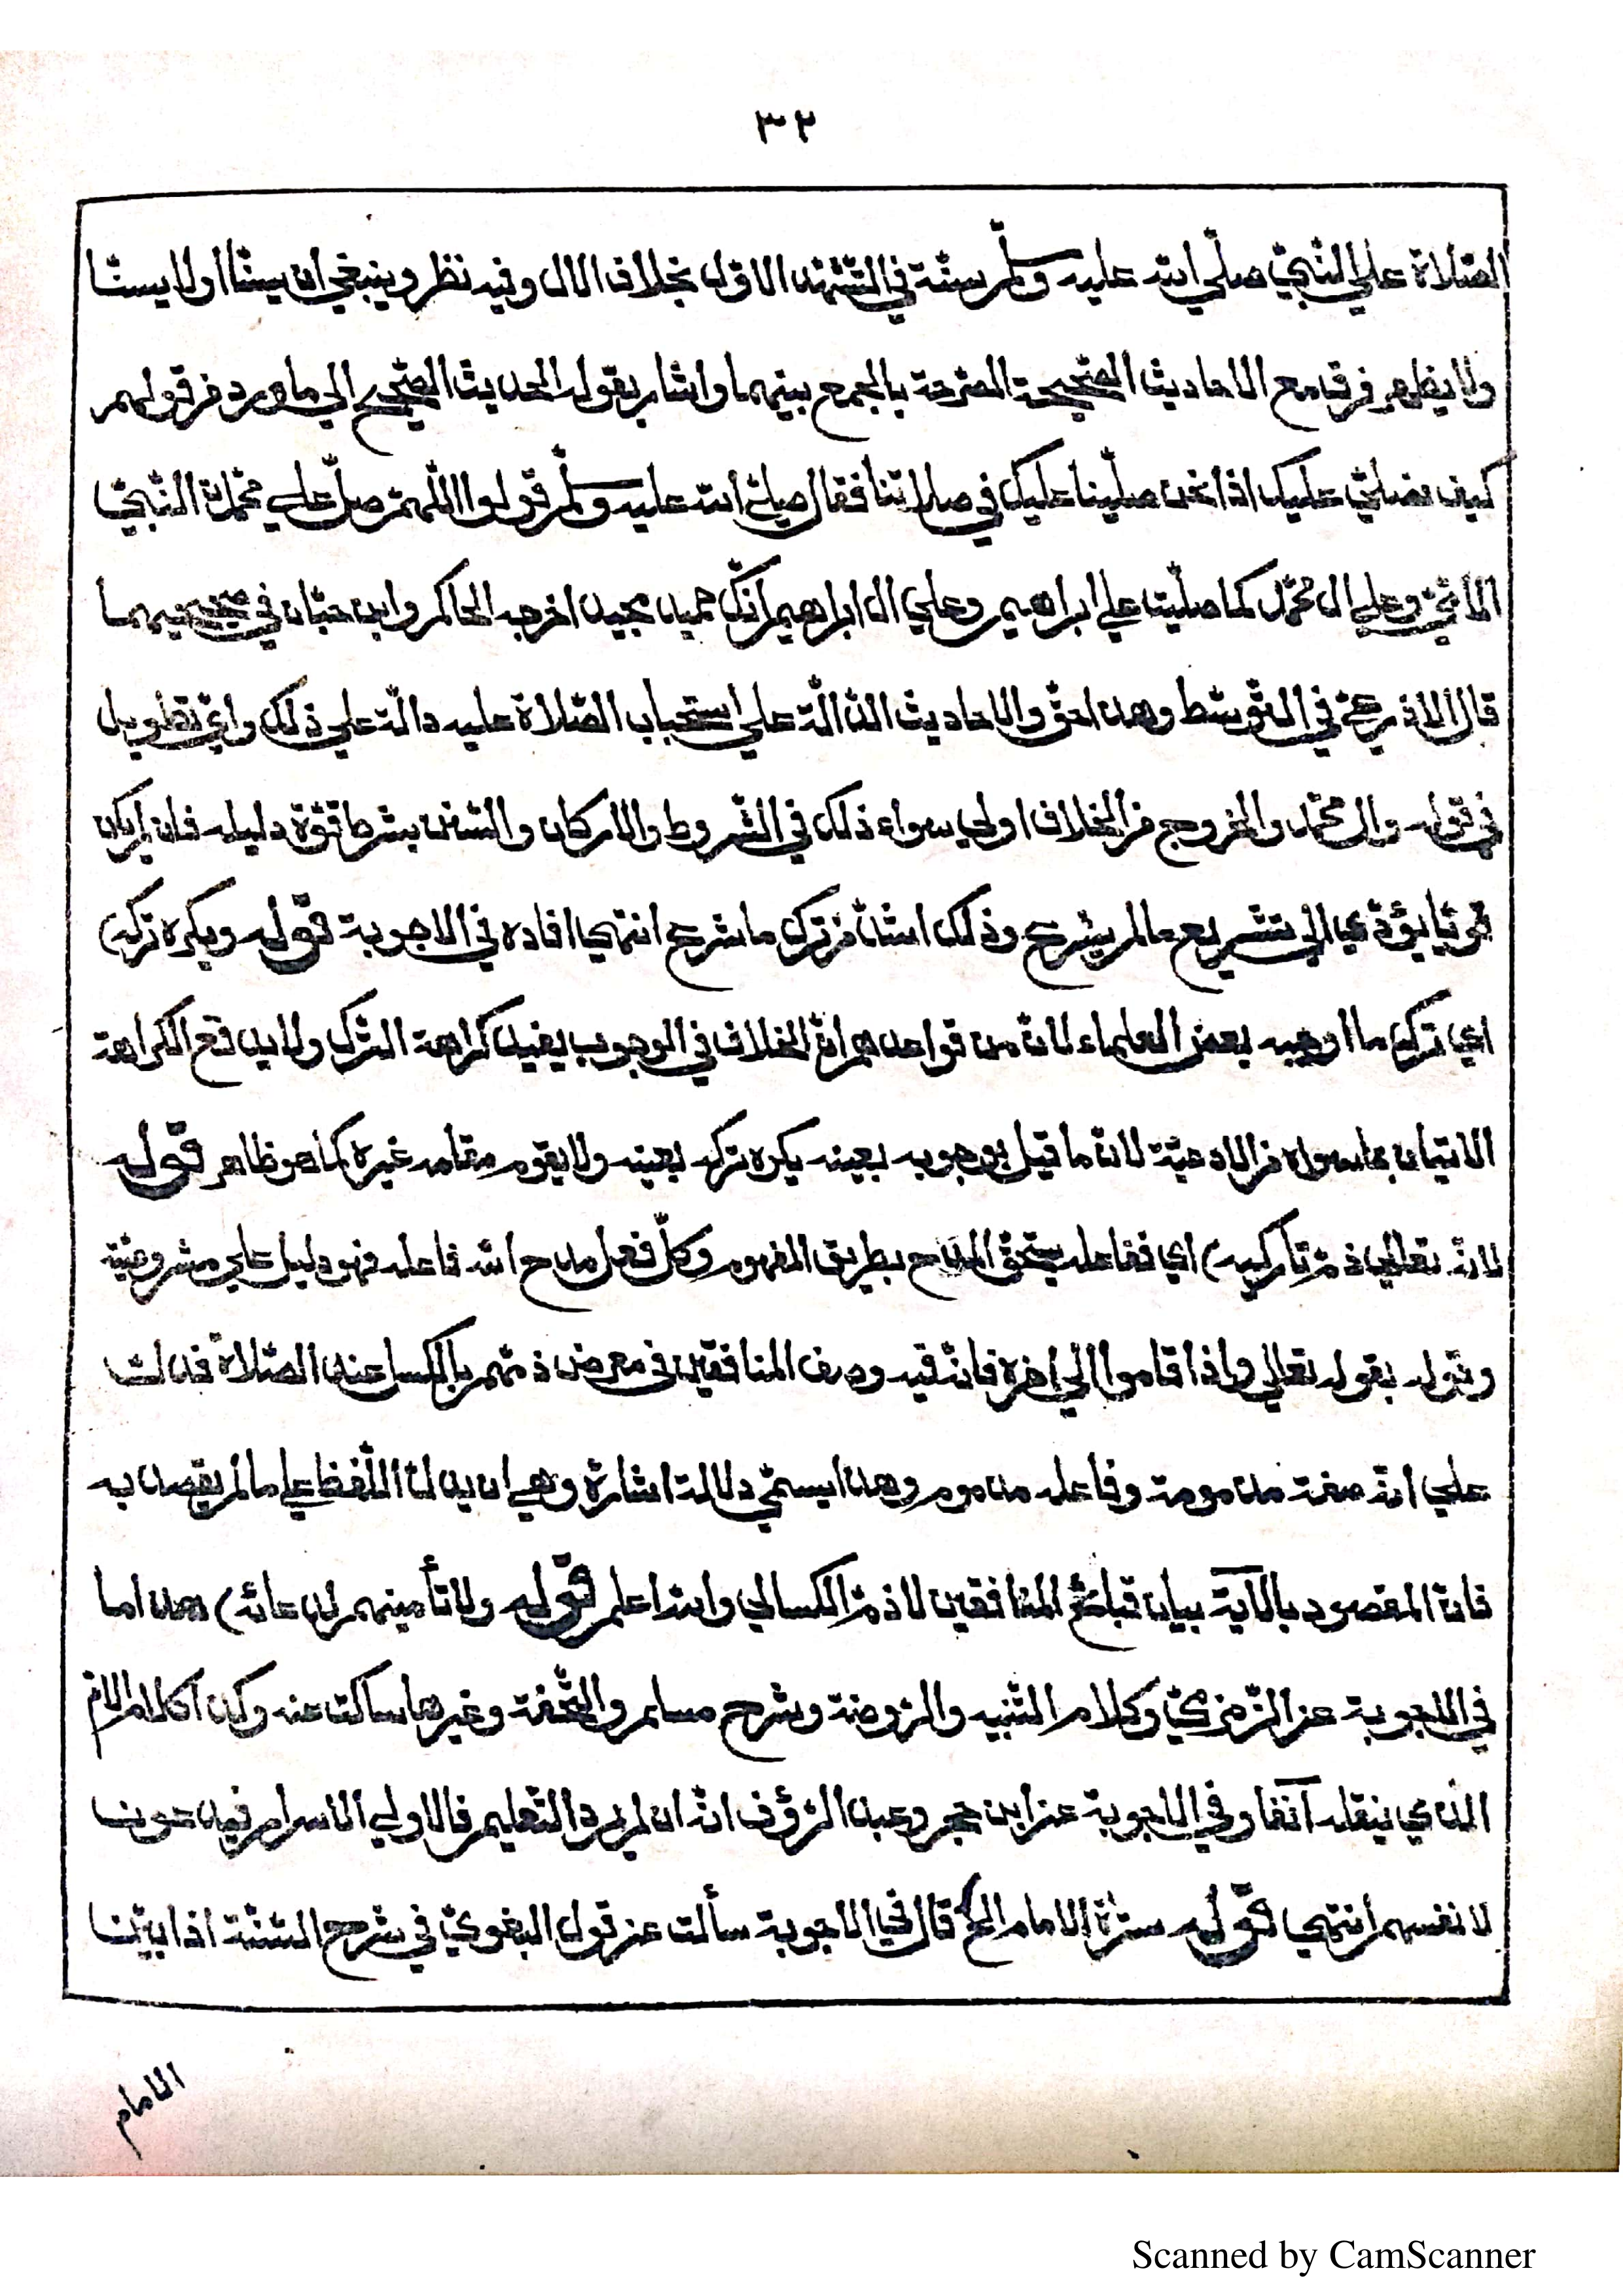 ٣٢
الصّلاة علي النّبيّ صلّي الله عليه وسلّم سنّة في التّشهّد الاوّل بخلاف الال وفيه نظر وينبغي ان يسنّا اولا يسنّا
ولا يظهر فرق مع الاحاديث الصّحيحة المصرّحة بالجمع بينهما واشار بقوله الحديث الصّحيح الي ما ورد من قولهم
كيف نصلّي عليك اذا نحن صلّينا عليك في صلاتنا فقال صلي الله عليه وسلّم قولوا اللّهمّ صلّ علي محمّد النّبيّ
الامّيّ وعلي ال محمّد كما صلّيت علي ابراهيم وعلي ال ابراهيم انّك حميد مجيد اخرجه الحاكم وابن حبّان في صحيحيهما
قال الاذرعيّ في التّوسّط وهذا حقّ والاحاديث الدّالّة علي استحباب الصّلاة عليه دالّة علي ذلك وايّ تطويل
في قوله وال محمّد والخروج من الخلاف اولي سواء ذلك في الشّروط والاركان والسّنن بشرط قوّة دليله فان لم يكن
قويّا يؤدّي الي تشريع مالم يشرع وذلك اشدّ من ترك ما شرع انتهي افاده في الاجوبة قوله ويكره تركه)
اي ترك ما اوجبه بعض العلماء لانّ من قواعدهم انّ الخلاف في الوجوب يفيد كراهة التّرك ولا يدفع الكراهة
الاتيان بما سواه من الادعيّة لانّ ما قيل بوجوبه بعينه يكره تركه بعينه ولا يقوم مقامه غيره كما هو ظاهر قوله
لانّه تعالي ذمّ تاركيه) اي ففاعله يستحقّ المدح بطريق المفهوم وكلّ فعل مدح الله فاعله فهو دليل علي مشروعيّته
وقوله بقوله تعالي واذا قاموا الي اخره فانّه قيد وصف المنافقين في معرض ذمّهم بالكسل عند الصّلاة فدلّت
علي انّه صفة مذمومة وفاعله مذموم وهذا يسمّي دلالة اشارة وهي ان يدلّ اللّفظ علي ما لم يقصد به
فانّ المقصود بالاۤية بيان قبائح المنافقين لا ذمّ الكسالي والله اعلم قوله ولا تأمينهم لدعائه) هذا ما
في الاجوبة عن الزّمزميّ وكلام التّنبيه والرّوضة وشرح مسلم والتّحفة وغيرها ساكت عنه وكذا كلام الامّ
الذي ينقله آنفا وفي الاجوبة عن ابن حجر وعبد الرّؤف انّه ان لم يرد التّعليم فالاولي الاسرار فيدعون
لانفسهم انتهي قوله سترة الامام الخ) قال في الاجوبة سألت عن قول البغويّ في شرح السّنّة اذا بيّنا
الامام
Scanned by CamScanner